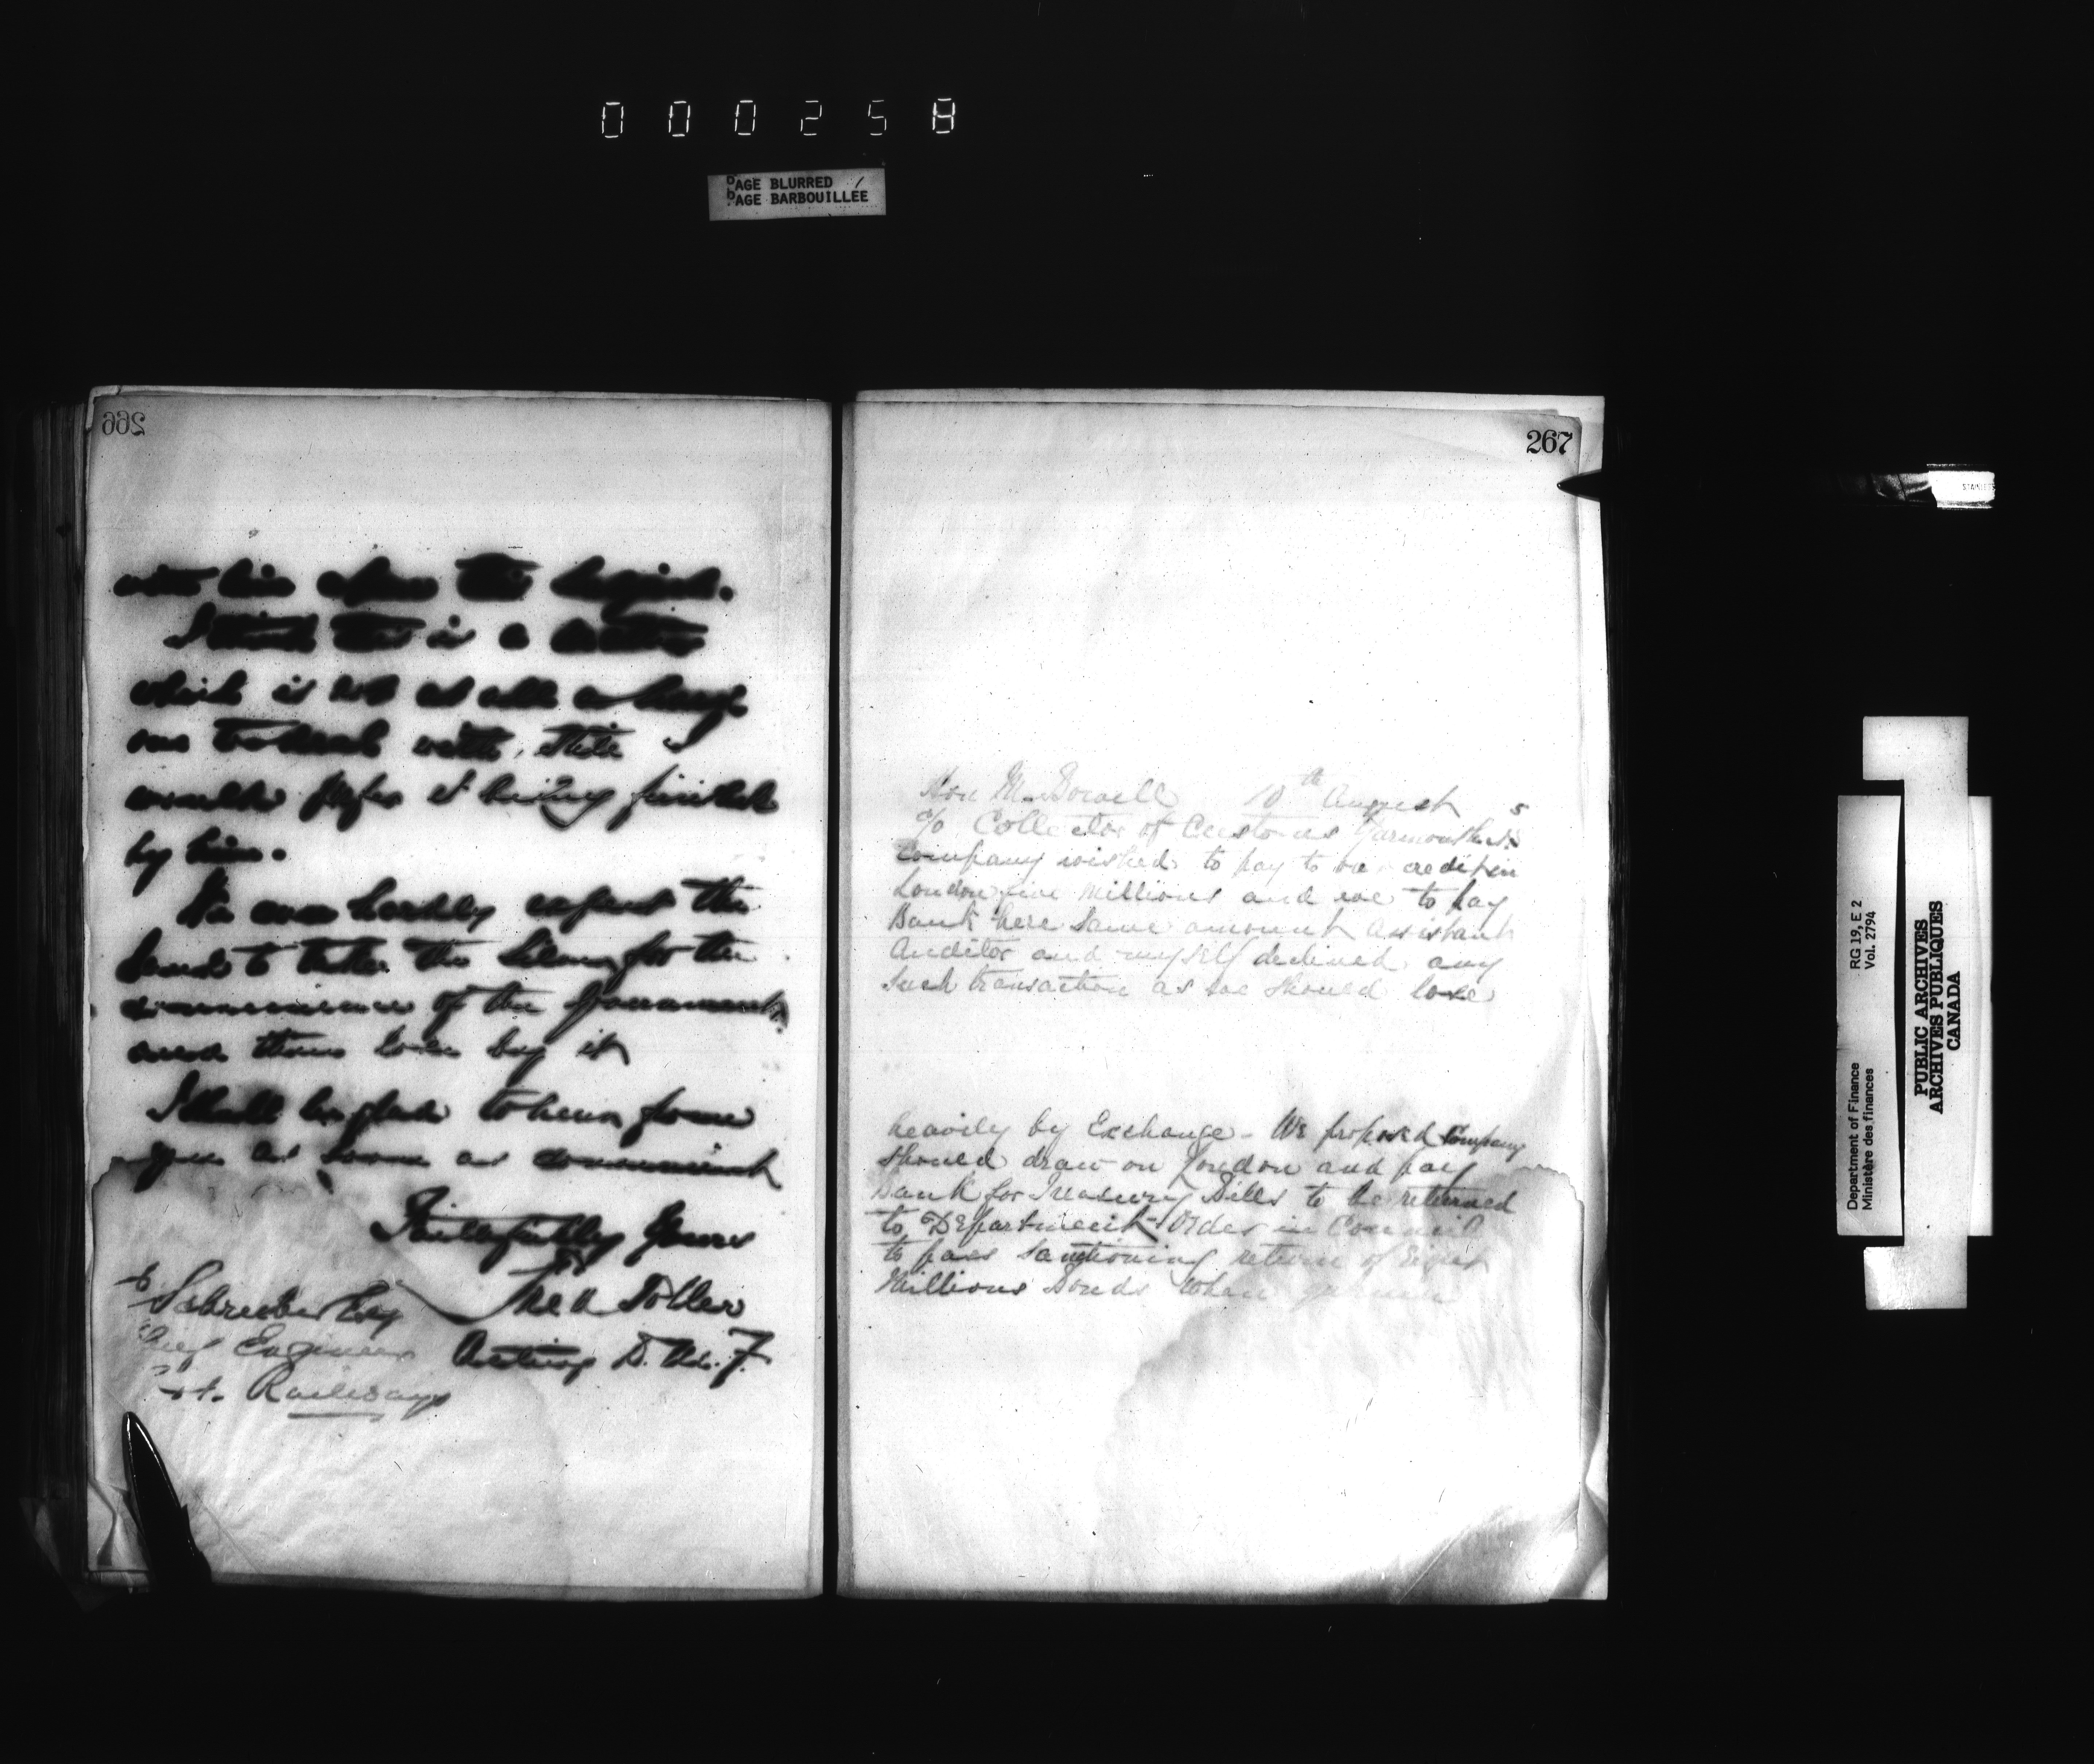 000258
PAGE BLURRED
PAGE BARBOUILLÉE
266
with him upon the subject.
I think this is a matter
which is not at all a
one to deal with, this
would prefer it being finished
by him.
We can hardly expect the
Bank to take the Silver for the
convenience of the Government,
and then lose by it
I shall be glad to hear from
you as soon as convenient
Faithfully Yours
Toller
Acting D. M. F.
Schreiber Esq
Chief Engineer
Railways
267
Hon M. Bowell 10th August 5
c/o Collector of Customs Yarmouth N.S.
Company wished to pay to our credit in
London five Millions and we to pay
Bank here same amount Assistant
Auditor and myself declined any
such transaction as we should lose
heavily by Exchange - We proposed Company
should draw on London and pay
Bank for Treasury Bills to be returned
to Department - Order in Council
to pass sanctioning return of Eight
Millions Bonds when
STAINLESS
RG 19, E 2
Vol. 2794
Department of Finance
Ministère des finances
PUBLIC ARCHIVES
ARCHIVES PUBLIQUES
CANADA